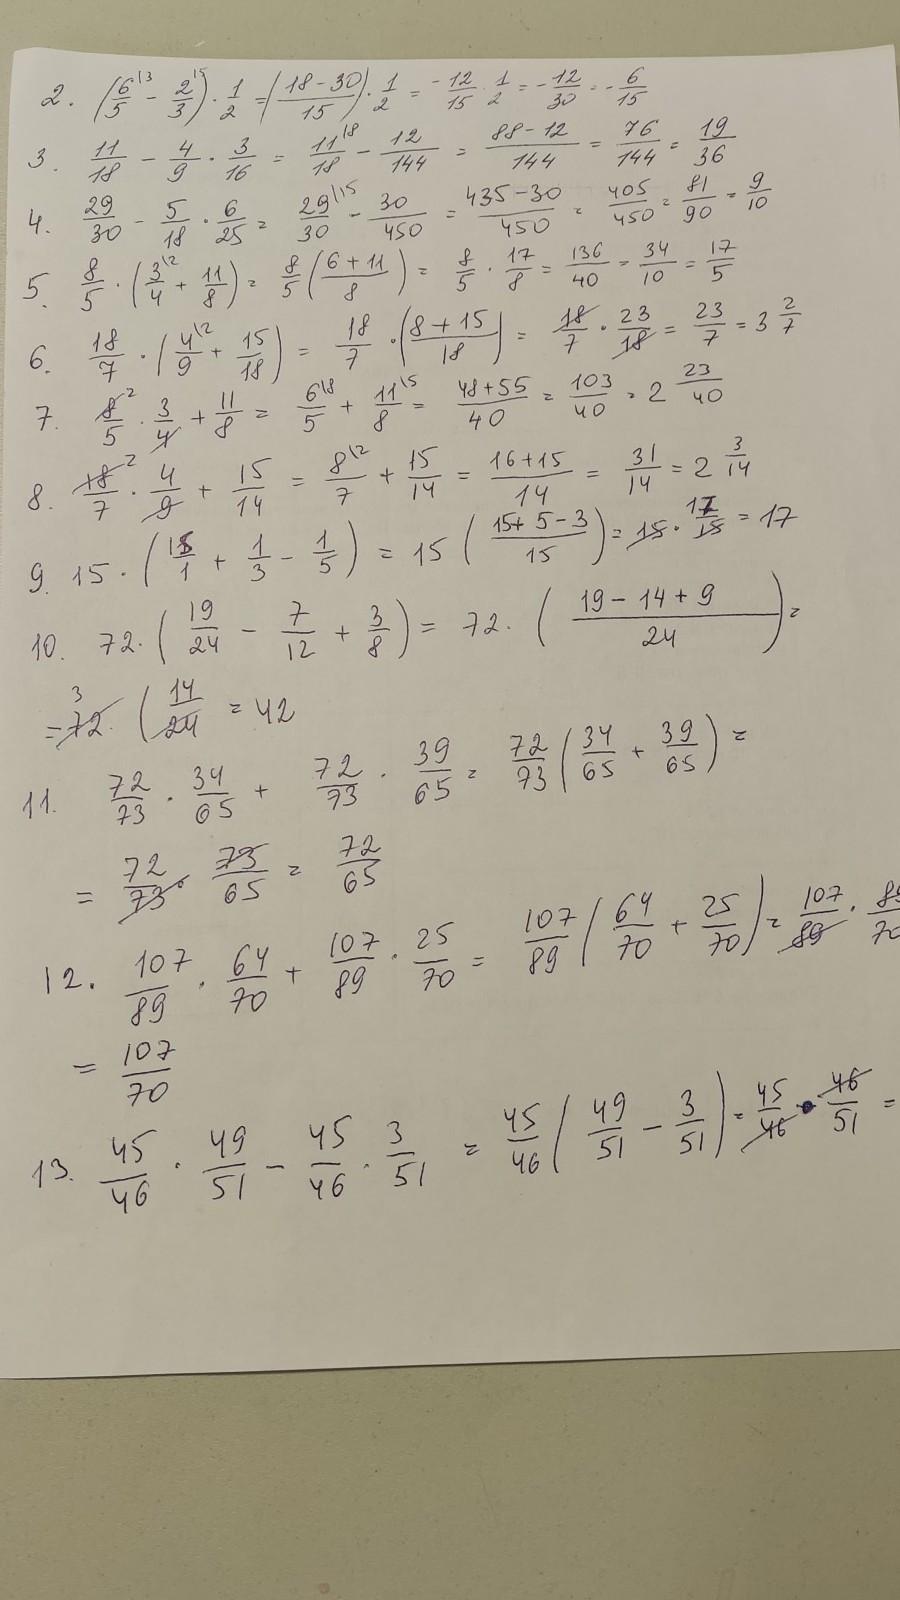 2. (6/5\3 - 2/3\5) · 1/2 = ((18-30)/15) · 1/2 = -12/15 · 1/2 = -12/30 = -6/15
3. 11/18 - 4/9 · 3/16 = 11/18\8 - 12/144 = (88-12)/144 = 76/144 = 19/36
4. 29/30 - 5/18 · 6/25 = 29/30\15 - 30/450 = (435-30)/450 = 405/450 = 81/90 = 9/10
5. 8/5 · (3/4\2 + 11/8) = 8/5 ((6+11)/8) = 8/5 · 17/8 = 136/40 = 34/10 = 17/5
6. 18/7 · (4/9\2 + 15/18) = 18/7 · ((8+15)/18) = 18/7 · 23/18 = 23/7 = 3 2/7
7. 8/5 2 · 3/4 + 11/8 = 6/5\8 + 11/8\5 = (48+55)/40 = 103/40 = 2 23/40
8. 18/7 2 · 4/9 + 15/14 = 8/7\2 + 15/14 = (16+15)/14 = 31/14 = 2 3/14
9. 15 · (1/1 + 1/3 - 1/5) = 15 ((15+5-3)/15) = 15 · 17/15 = 17
10. 72 · (19/24 - 7/12 + 3/8) = 72 · ((19-14+9)/24) =
= 3 72 · (14/24 = 42
11. 72/73 · 34/65 + 72/73 · 39/65 = 72/73 (34/65 + 39/65) =
= 72/73 · 73/65 = 72/65
12. 107/89 · 64/70 + 107/89 · 25/70 = 107/89 (64/70 + 25/70) = 107/89 · 89/70
= 107/70
13. 45/46 · 49/51 - 45/46 · 3/51 = 45/46 (49/51 - 3/51) = 45/46 · 46/51 =